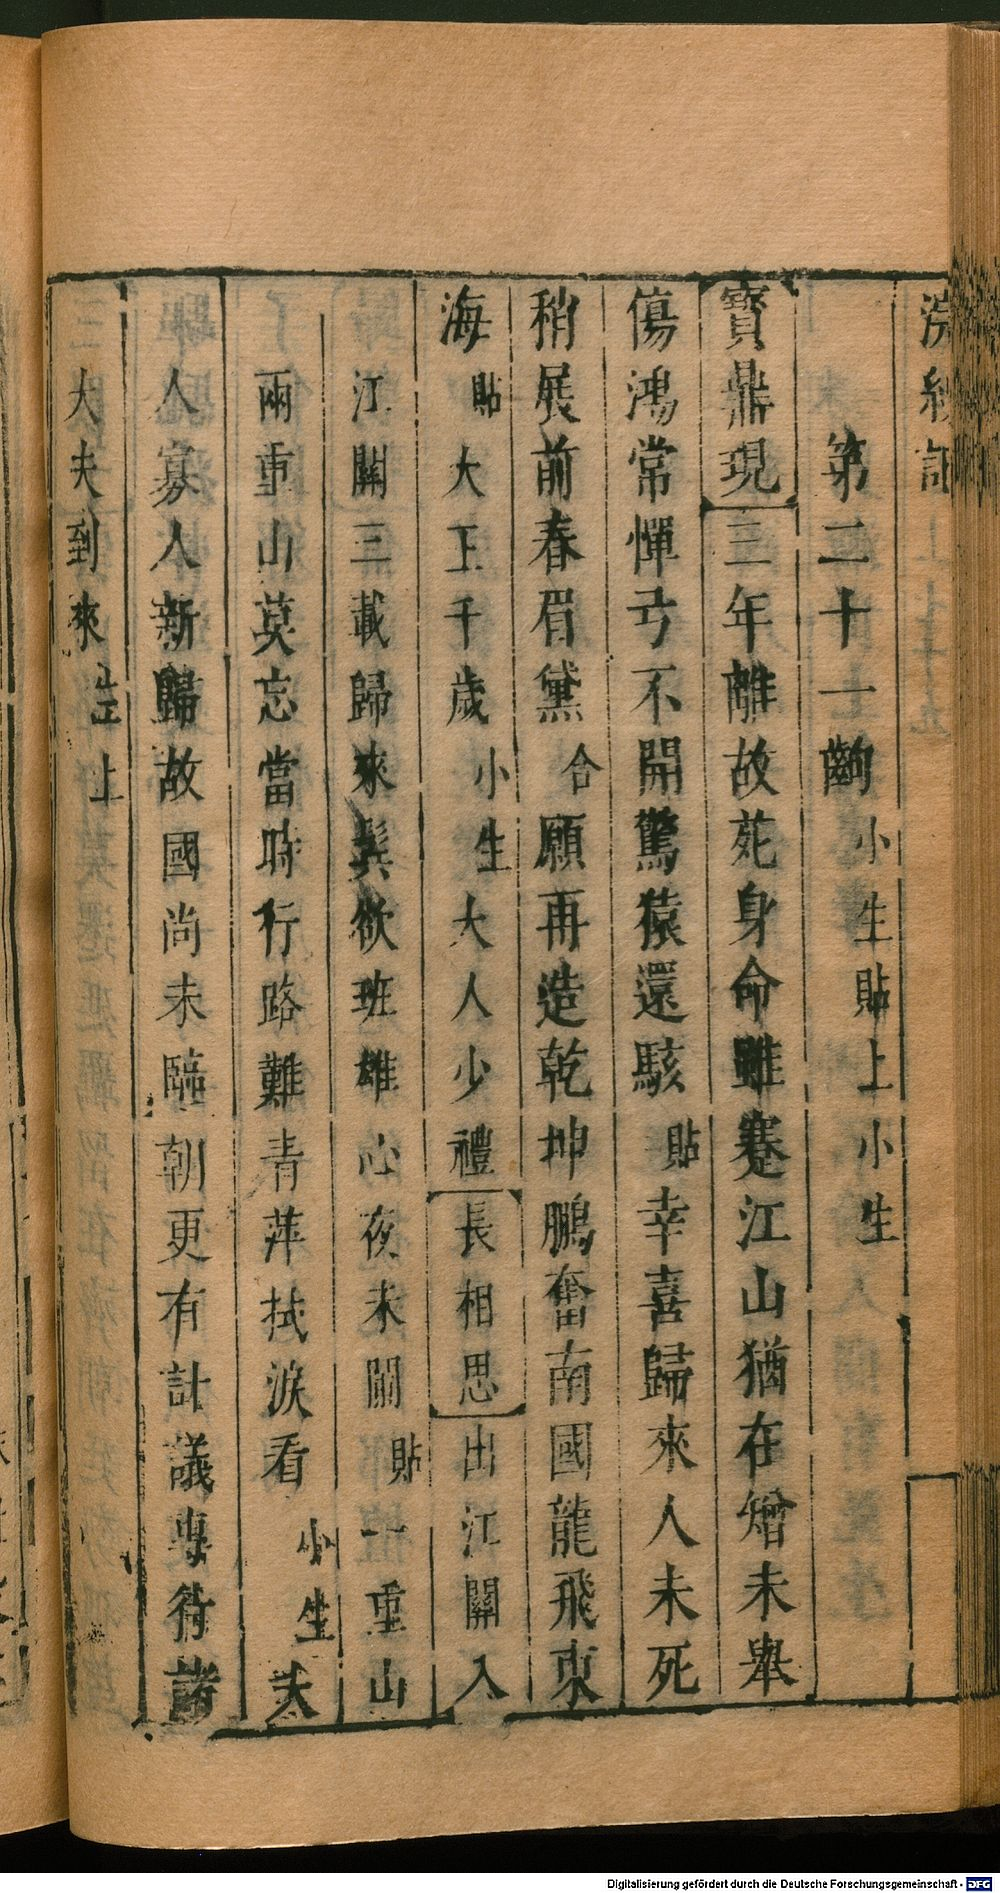 浣紗記
第二十一齣 小生貼上小生
寶鼎現 三年離故苑身命雖蹇江山猶在矰未舉
傷鴻常憚弓不開驚猿還駭 貼 幸喜歸來人未死
稍展前春眉黛 合 願再造乾坤鵬奮南國龍飛東
海 貼 大王千歲 小生 大人少禮 長相思 出江關入
江關三載歸來鬂欲班雄心夜未闌 貼 一重山
兩重山莫忘當時行路難青萍拭淚看 小生 夫
人寡人新歸故國尚未臨朝更有計議專待諸
大夫到來 㞷上
Digitalisierung gefördert durch die Deutsche Forschungsgemeinschaft - DFG